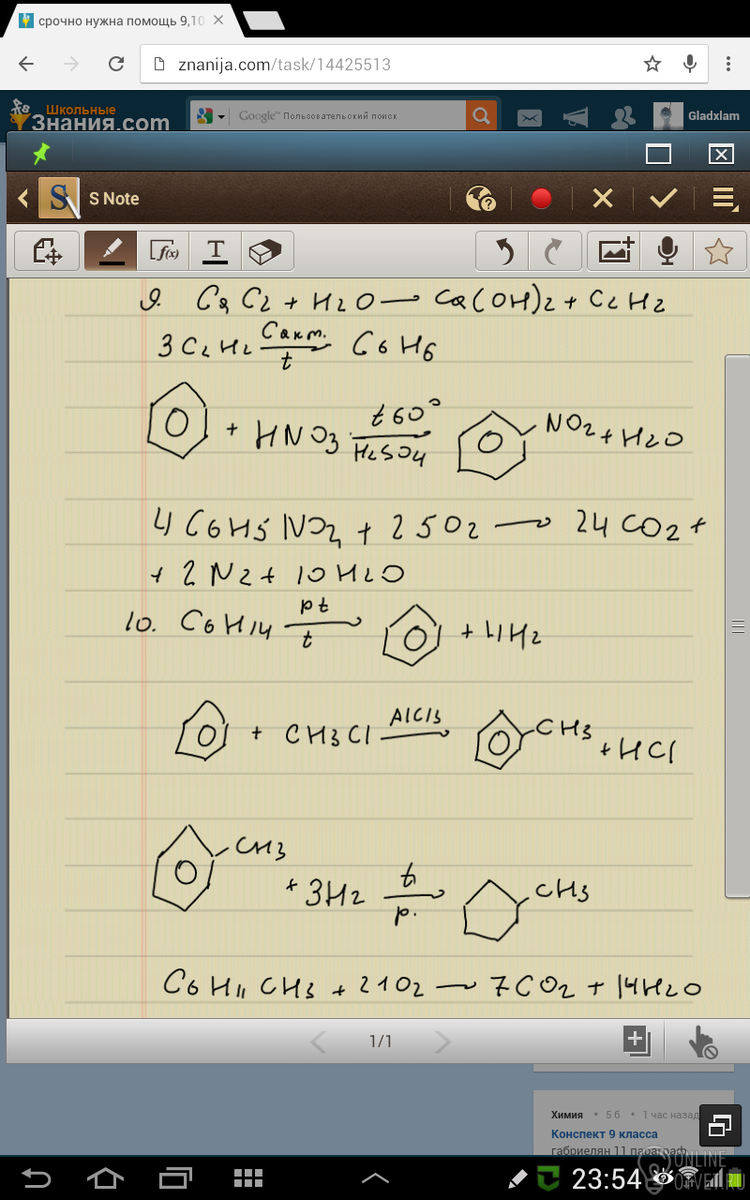 срочно нужна помощь 9,10
znanija.com/task/14425513
Школьные
Знания.com
Google™ Пользовательский поиск
Gladxlam
S Note
f(x)
T
9. CaC2 + H2O → Ca(OH)2 + C2H2
3C2H2 Cакт. t → C6H6
+ HNO3 t60° H2SO4 → NO2 + H2O
4C6H5NO2 + 25O2 → 24CO2 +
+ 2N2 + 10H2O
10. C6H14 pt t → + 4H2
+ CH3Cl AlCl3 → CH3 + HCl
CH3 + 3H2 t p. → CH3
C6H11CH3 + 21O2 → 7CO2 + 14H2O
1/1
Химия • 5 б • 1 час назад
Конспект 9 класса
габриелян 11 параграф
23:54
ONLINE
OTVET.RU